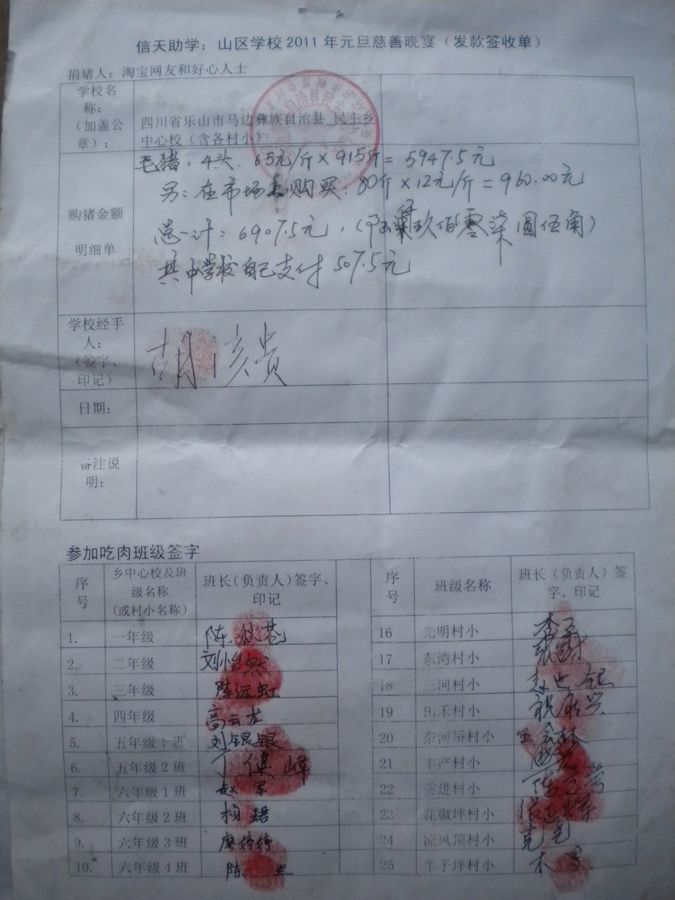 信天助学：山区学校2011年元旦慈善晚宴（发款签收单）
捐猪人：淘宝网友和好心人士
学校名称：（加盖公章）：
四川省乐山市马边彝族自治县 民主乡中心校（含各村小）
自治县民主
购猪金额明细单
毛猪，4头，6.5元/斤×915斤=5947.5元
另：在市场上购买：80斤×12元/斤=960.00元
总计：6907.5元，（陆仟玖佰零柒圆伍角）
其中学校自己支付507.5元
学校经手人：（签字、印记）
胡
贵
日期：
备注说明：
参加吃肉班级签字
序号 乡中心校及班级名称（或村小名称） 班长（负责人）签字、印记 序号 班级名称 班长（负责人）签字、印记
1. 一年级 陈 苍 16 光明村小
2. 二年级 刘怡然 17 东湾村小
3. 三年级 陈远虹 18 三河村小
4. 四年级 高云龙 19 田禾村小
5. 五年级1班 刘银银 20 东河场村小
6. 五年级2班 丁健峰 21 丰产村小
7. 六年级1班 赵军 22 前进村小
8. 六年级2班 杨珺 23 花椒坪村小
9. 六年级3班 廖婷婷 24 凉风顶村小
10. 六年级4班 陈 25 羊子坪村小